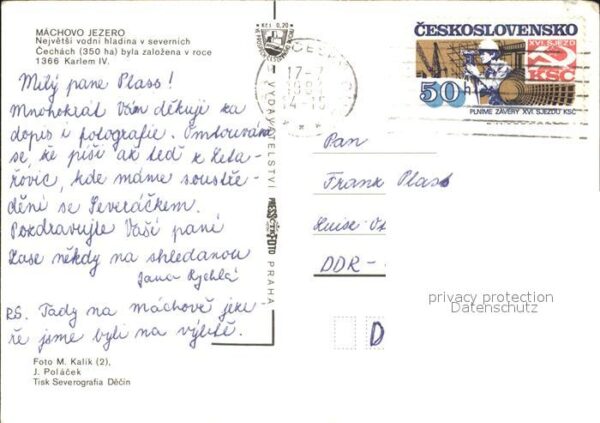 MÁCHOVO JEZERO
Největší vodní hladina v severních
Čechách (350 ha) byla založena v roce
1366 Karlem IV.
Milý pane Plass!
Mnohokrát Vám děkuji za
dopis i fotografie. Omlouvám
se, že píši až teď z
kde máme soustře-
dění se Severáčkem.
Pozdravujte Vaší paní
Zase někdy na shledanou
Jana Rychlá
PS. Tady na máchově jeze-
ře jsme byli na výletě.
Foto M. Kalík (2),
J. Poláček
Tisk Severografia Děčín
Kčs 0,20
VYDAVATELSTVÍ
PRESSFOTO
PRAHA
17-7
ČESKOSLOVENSKO
XVI. SJEZD
KSČ
50 h
PLNÍME ZÁVĚRY XVI. SJEZDU KSČ
Pan
Frank Plass
DDR -
D
privacy protection
Datenschutz